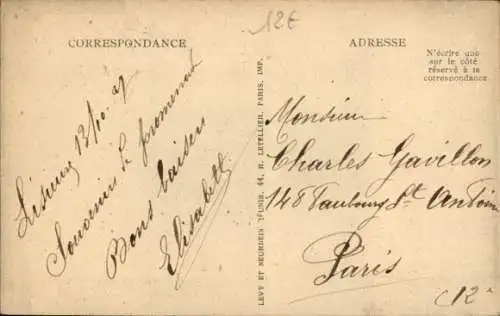 12€
CORRESPONDANCE
Lisieux 13/10 27
Souvenirs de promenade
Bons baisers
Elisabeth
LEVY ET NEURDEIN RÉUNIS, 44, R. LETELLIER, PARIS, IMP.
ADRESSE
N'écrire que
sur le côté
réservé à la
correspondance
Monsieur
Charles Gavillon
148 Faubourg St Antoine
Paris
(12e